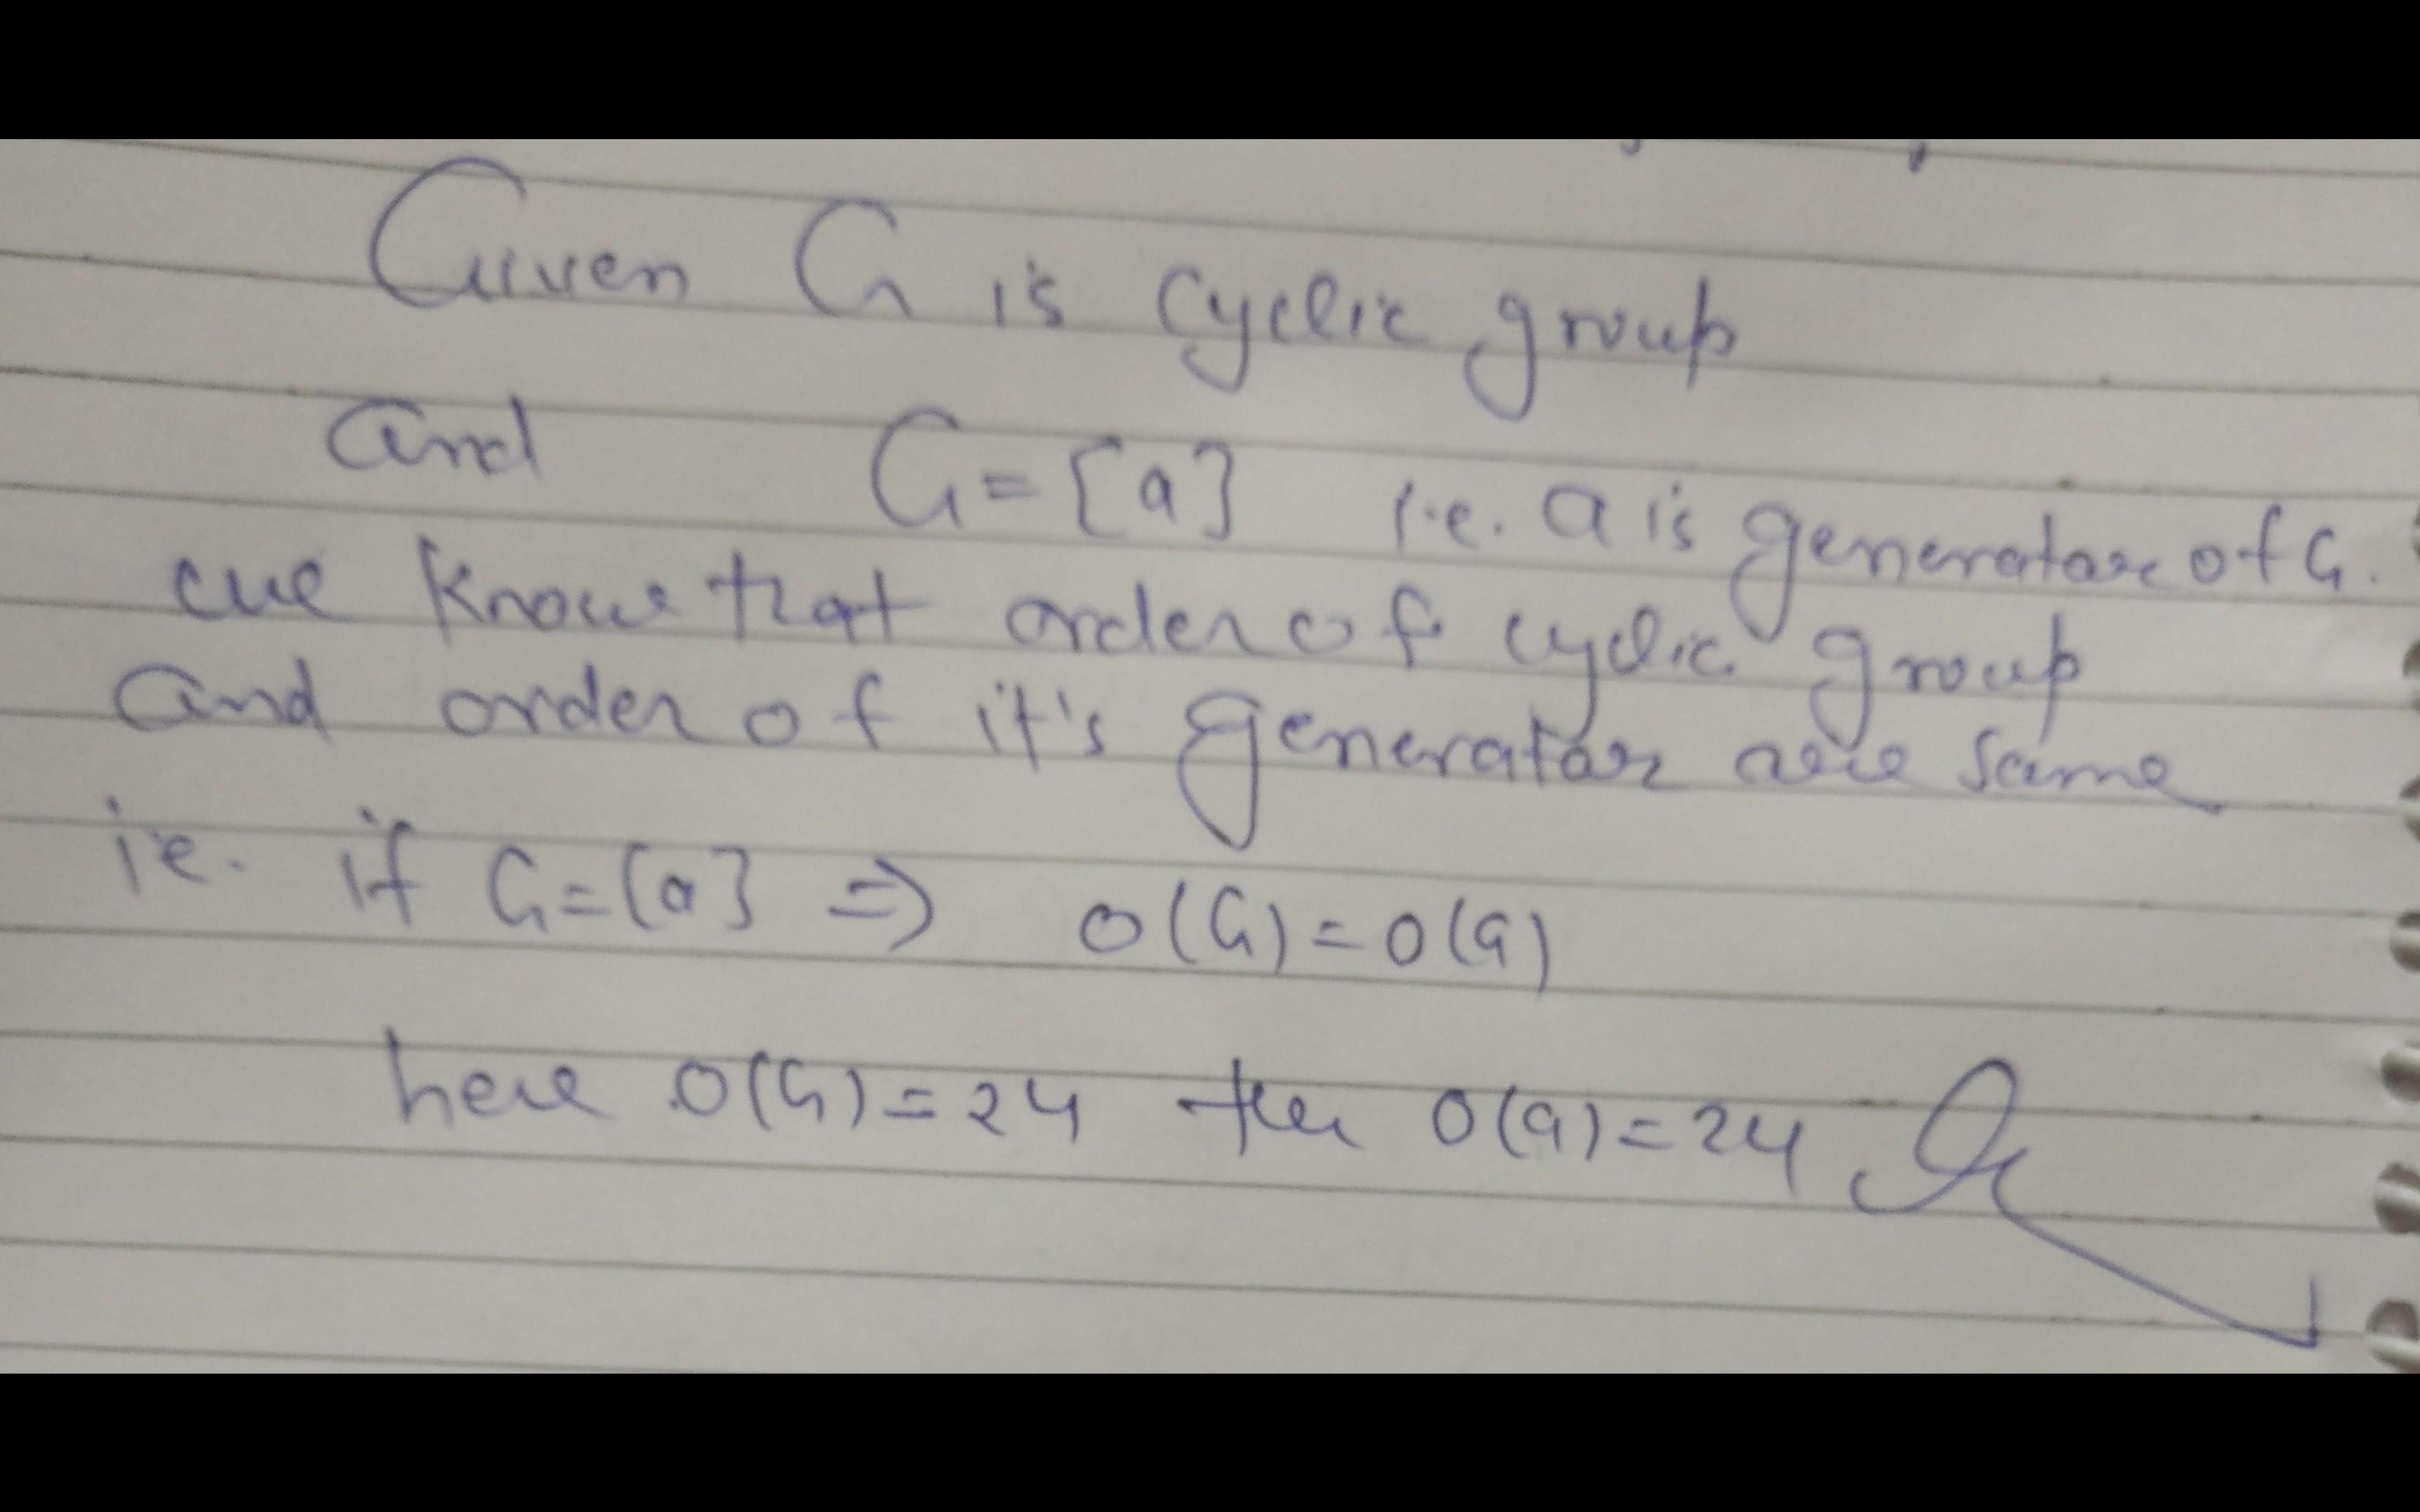 Given G is cyclic group
and G = [a} i.e. a is generator of G.
we know that order of cyclic group
and order of it's generator are same
i.e. if G = {a} ⇒ O(G) = O(a)
here O(G) = 24 then O(a) = 24